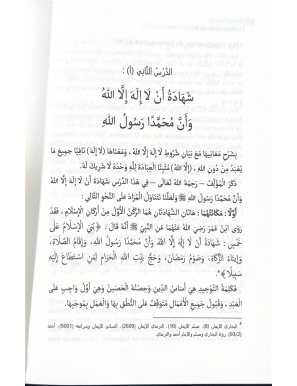 الدَّرْسُ الثَّانِي (أ) :
شَهَادَةُ أَنْ لَا إِلَهَ إِلَّا اللهُ
وَأَنَّ مُحَمَّدًا رَسُولُ اللهِ
بِشَرْحِ مَعَانِيهَا مَعَ بَيَانِ شُرُوطِ لَا إِلَهَ إِلَّا اللهُ ، وَمَعْنَاهَا (لَا إِلَهَ) نَافِيًا جَمِيعَ مَا
يُعْبَدُ مِنْ دُونِ اللهِ، (إِلَّا اللهُ) مُثْبِتًا الْعِبَادَةَ لِلَّهِ وَحْدَهُ لَا شَرِيكَ لَهُ.
ذَكَرَ الْمُؤَلِّفُ – رَحِمَهُ اللهُ تَعَالَى – فِي هَذَا الدَّرْسِ شَهَادَةَ أَنْ لَا إِلَهَ إِلَّا اللهُ
وَأَنَّ مُحَمَّدًا رَسُولُ اللهِ ﷺ وَلَعَلَّنَا نَتَنَاوَلُ الْمُرَادَ عَلَى النَّحْوِ التَّالِي :
أَوَّلًا : مَكَانَتُهُمَا: هَاتَانِ الشَّهَادَتَانِ هُمَا الرُّكْنُ الْأَوَّلُ مِنْ أَرْكَانِ الْإِسْلَامِ، فَقَدْ
رَوَى ابْنُ عُمَرَ رَضِيَ اللهُ عَنْهُمَا عَنِ النَّبِيِّ ﷺ أَنَّهُ قَالَ : «بُنِيَ الْإِسْلَامُ عَلَى
خَمْسٍ : شَهَادَةِ أَنْ لَا إِلَهَ إِلَّا اللهُ وَأَنَّ مُحَمَّدًا رَسُولُ اللهِ، وَإِقَامِ الصَّلَاةِ،
وَإِيتَاءِ الزَّكَاةِ، وَصَوْمِ رَمَضَانَ، وَحَجِّ بَيْتِ اللهِ الْحَرَامِ لِمَنِ اسْتَطَاعَ إِلَيْهِ
سَبِيلًا»⁴.
فَكَلِمَةُ التَّوْحِيدِ هِيَ أَسَاسُ الدِّينِ وَحِصْنُهُ الْحَصِينُ وَهِيَ أَوَّلُ وَاجِبٍ عَلَى
الْعَبْدِ ، وَقَبُولُ جَمِيعِ الْأَعْمَالِ مُتَوَقِّفٌ عَلَى النُّطْقِ بِهَا وَالْعَمَلِ بِمُوجِبِهَا.
⁴ البخاري الإيمان (8)، مسلم الإيمان (16)، الترمذي الإيمان (2609)، النسائي الإيمان وشرائعه (5001)، أحمد
(93/2) رواه البخاري ومسلم والإمام أحمد والترمذي.